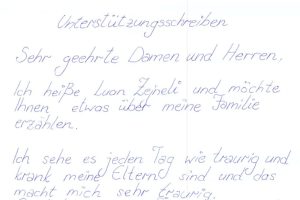 Unterstützungsschreiben
Sehr geehrte Damen und Herren,
Ich heiße Luan Zejneli und möchte
Ihnen etwas über meine Familie
erzählen.
Ich sehe es jeden Tag wie traurig und
krank meine Eltern sind und das
macht mich sehr traurig.